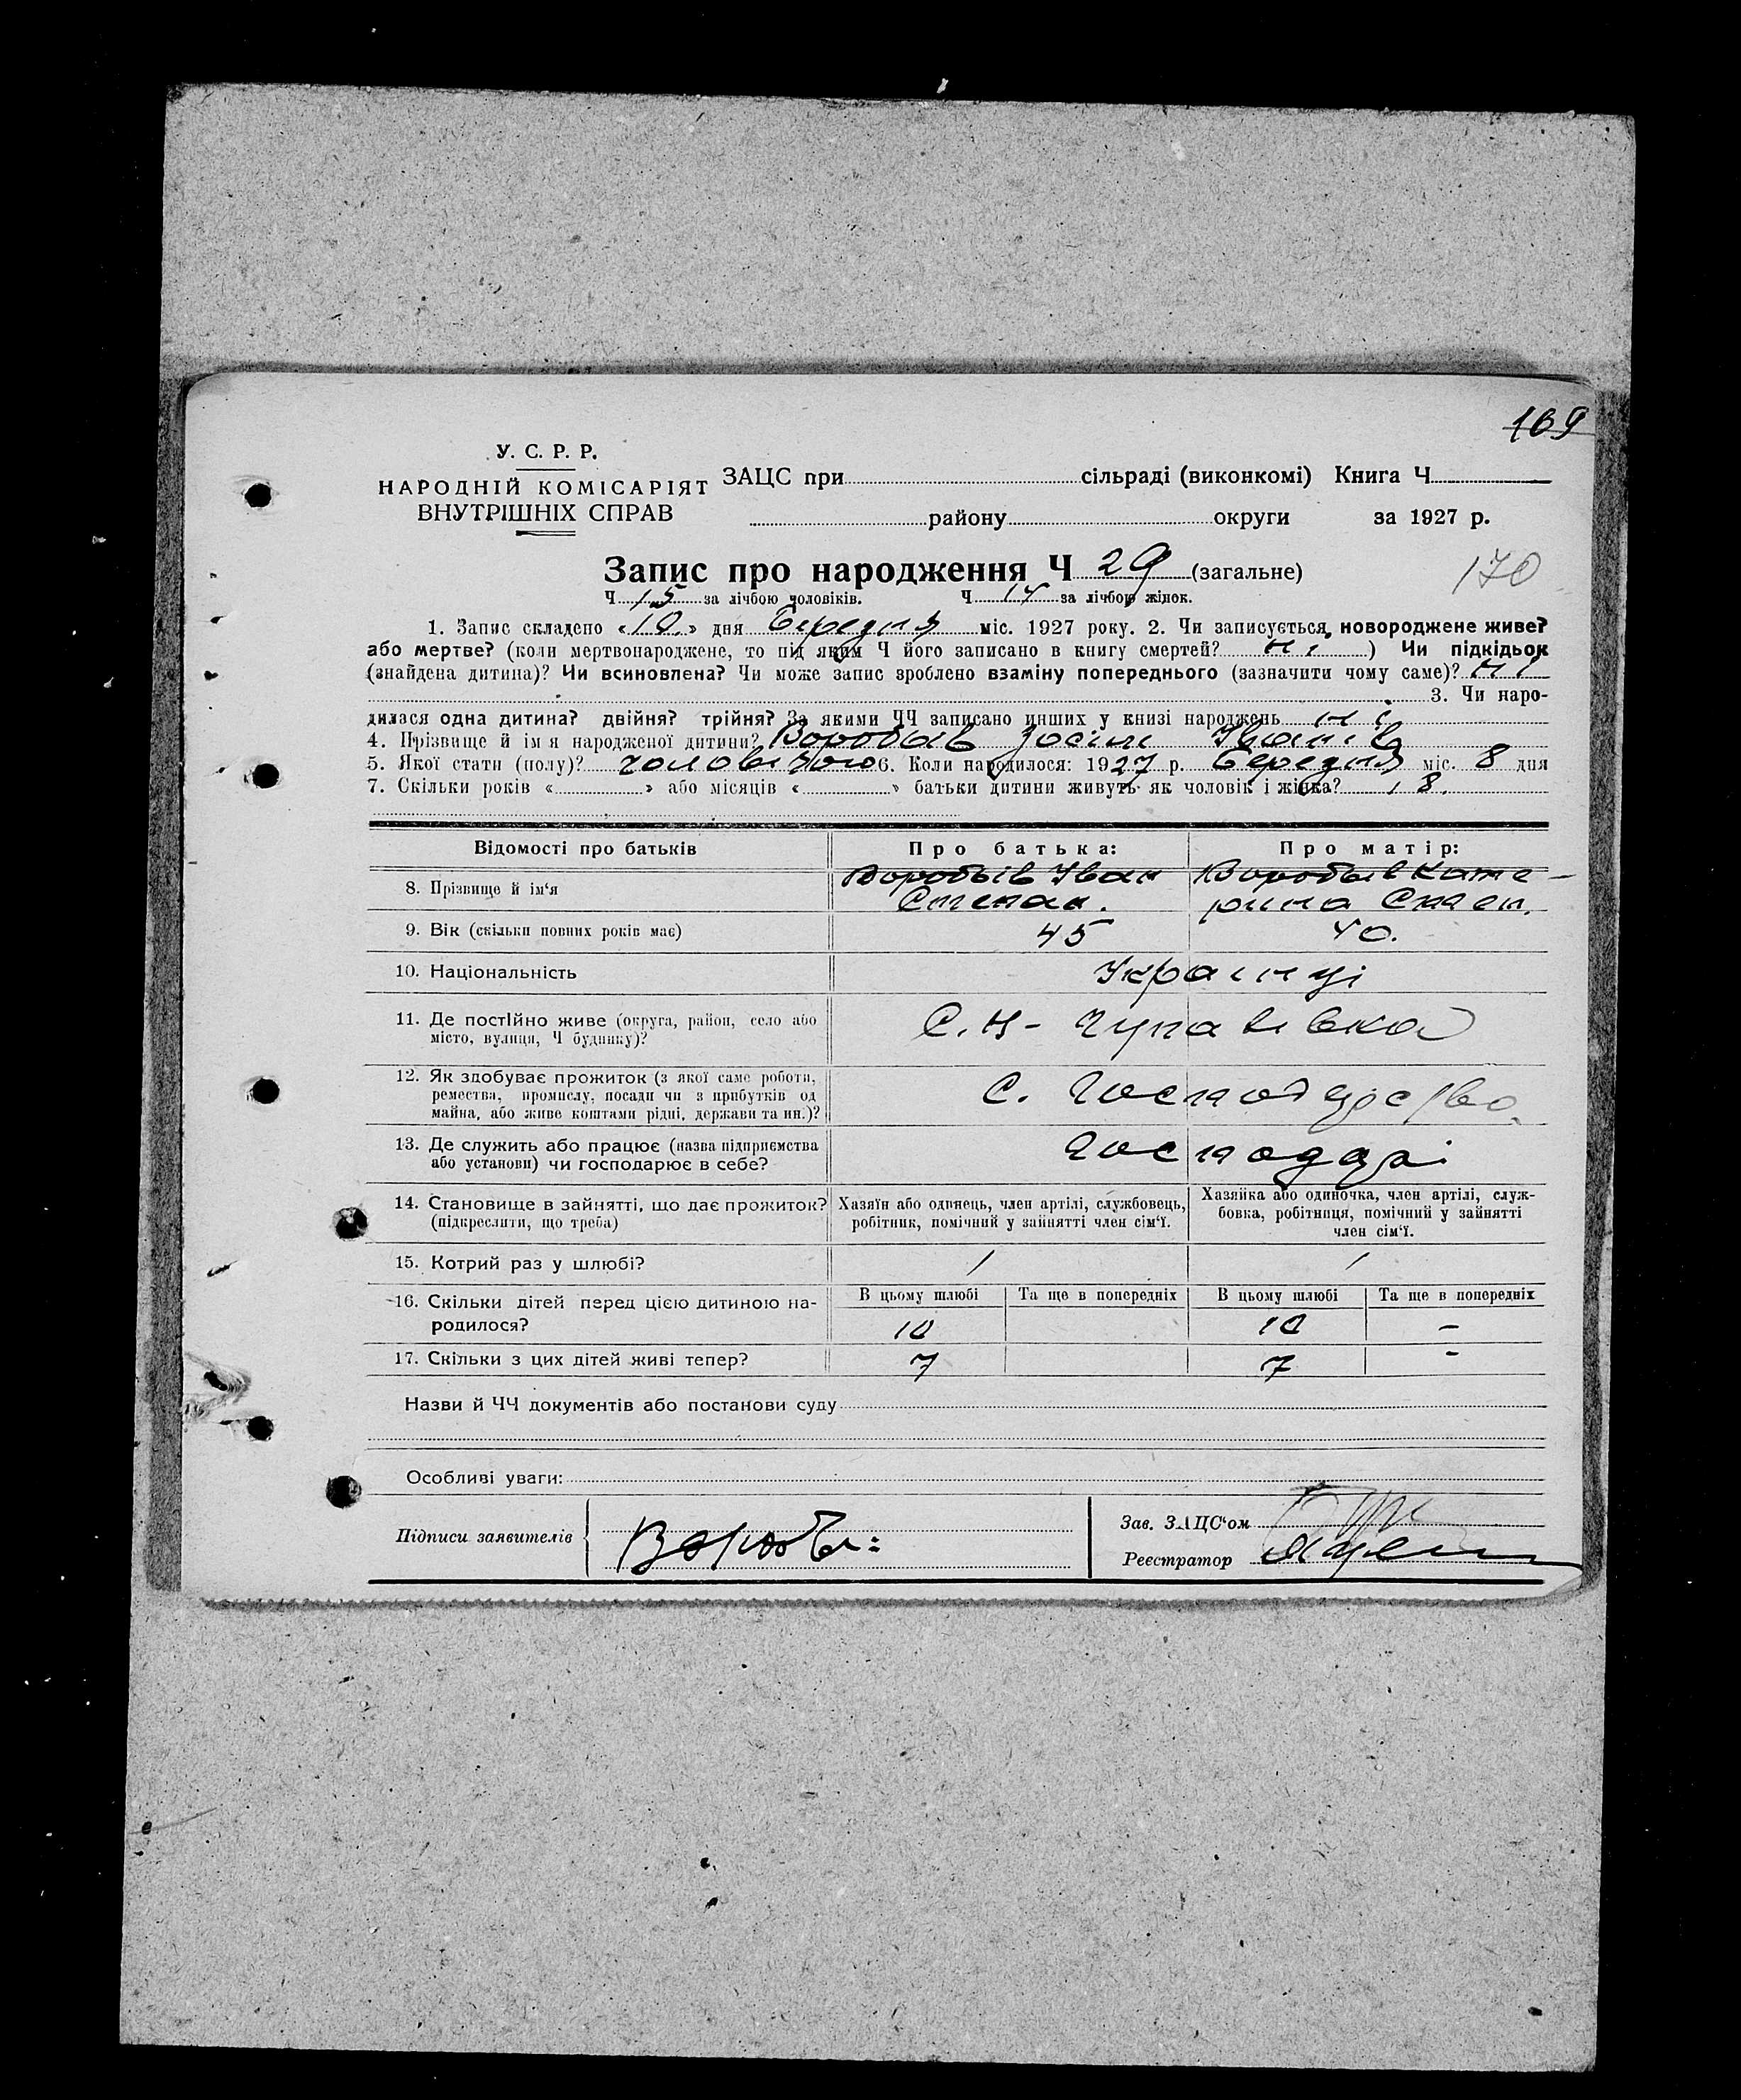 169
У. С. Р. Р.
НАРОДНІЙ КОМІСАРІЯТ
ВНУТРІШНІХ СПРАВ
ЗАЦС при сільраді (виконкомі) Книга Ч
району округи за 1927 р.
Запис про народження Ч 29 (загальне)
170
Ч 15 за лічбою чоловіків. Ч 14 за лічбою жінок.
1. Запис складено «10» дня Березня міс. 1927 року. 2. Чи записується новороджене живе?
або мертве? (коли мертвонароджене, то під яким Ч його записано в книгу смертей? ні ) Чи підкідьок
(знайдена дитина)? Чи всиновлена? Чи може запис зроблено взаміну попереднього (зазначити чому саме)? ні
3. Чи наро-
дилася одна дитина? двійня? трійня? За якими ЧЧ записано инших у книзі народжень ні
4. Прізвище й ім я народженої дитини? Воробьів Іванів
5. Якої стати (полу)? чоловічою 6. Коли народилося: 1927 р. Березня міс. 8 дня
7. Скільки років « » або місяців « » батьки дитини живуть як чоловік і жінка? 18.
Відомості про батьків
Про батька:
Про матір:
8. Прізвище й ім‘я
Воробьів Іван
Степан.
Воробьів Кате-
рина Степ.
9. Вік (скільки повних років має)
45
40.
10. Національність
Українці
11. Де постійно живе (округа, район, село або
місто, вулиця, Ч будинку)?
12. Як здобуває прожиток (з якої саме роботи,
ремества, промислу, посади чи з прибутків од
майна, або живе коштами рідні, держави та ин.)?
С. Господарство.
13. Де служить або працює (назва підприємства
або установи) чи господарює в себе?
Господарі
14. Становище в зайнятті, що дає прожиток?
(підкреслити, що треба)
Хазяїн або одинець, член артілі, службовець,
робітник, помічний у зайнятті член сім‘ї.
Хазяйка або одиночка, член артілі, служ-
бовка, робітниця, помічний у зайнятті
член сім‘ї.
15. Котрий раз у шлюбі?
1
1
16. Скільки дітей перед цією дитиною на-
родилося?
В цьому шлюбі
Та ще в попередніх
В цьому шлюбі
Та ще в попередніх
10
10
-
17. Скільки з цих дітей живі тепер?
7
7
-
Назви й ЧЧ документів або постанови суду
Особливі уваги:
Підписи заявителів
Зав. ЗАЦС‘ом
Реєстратор